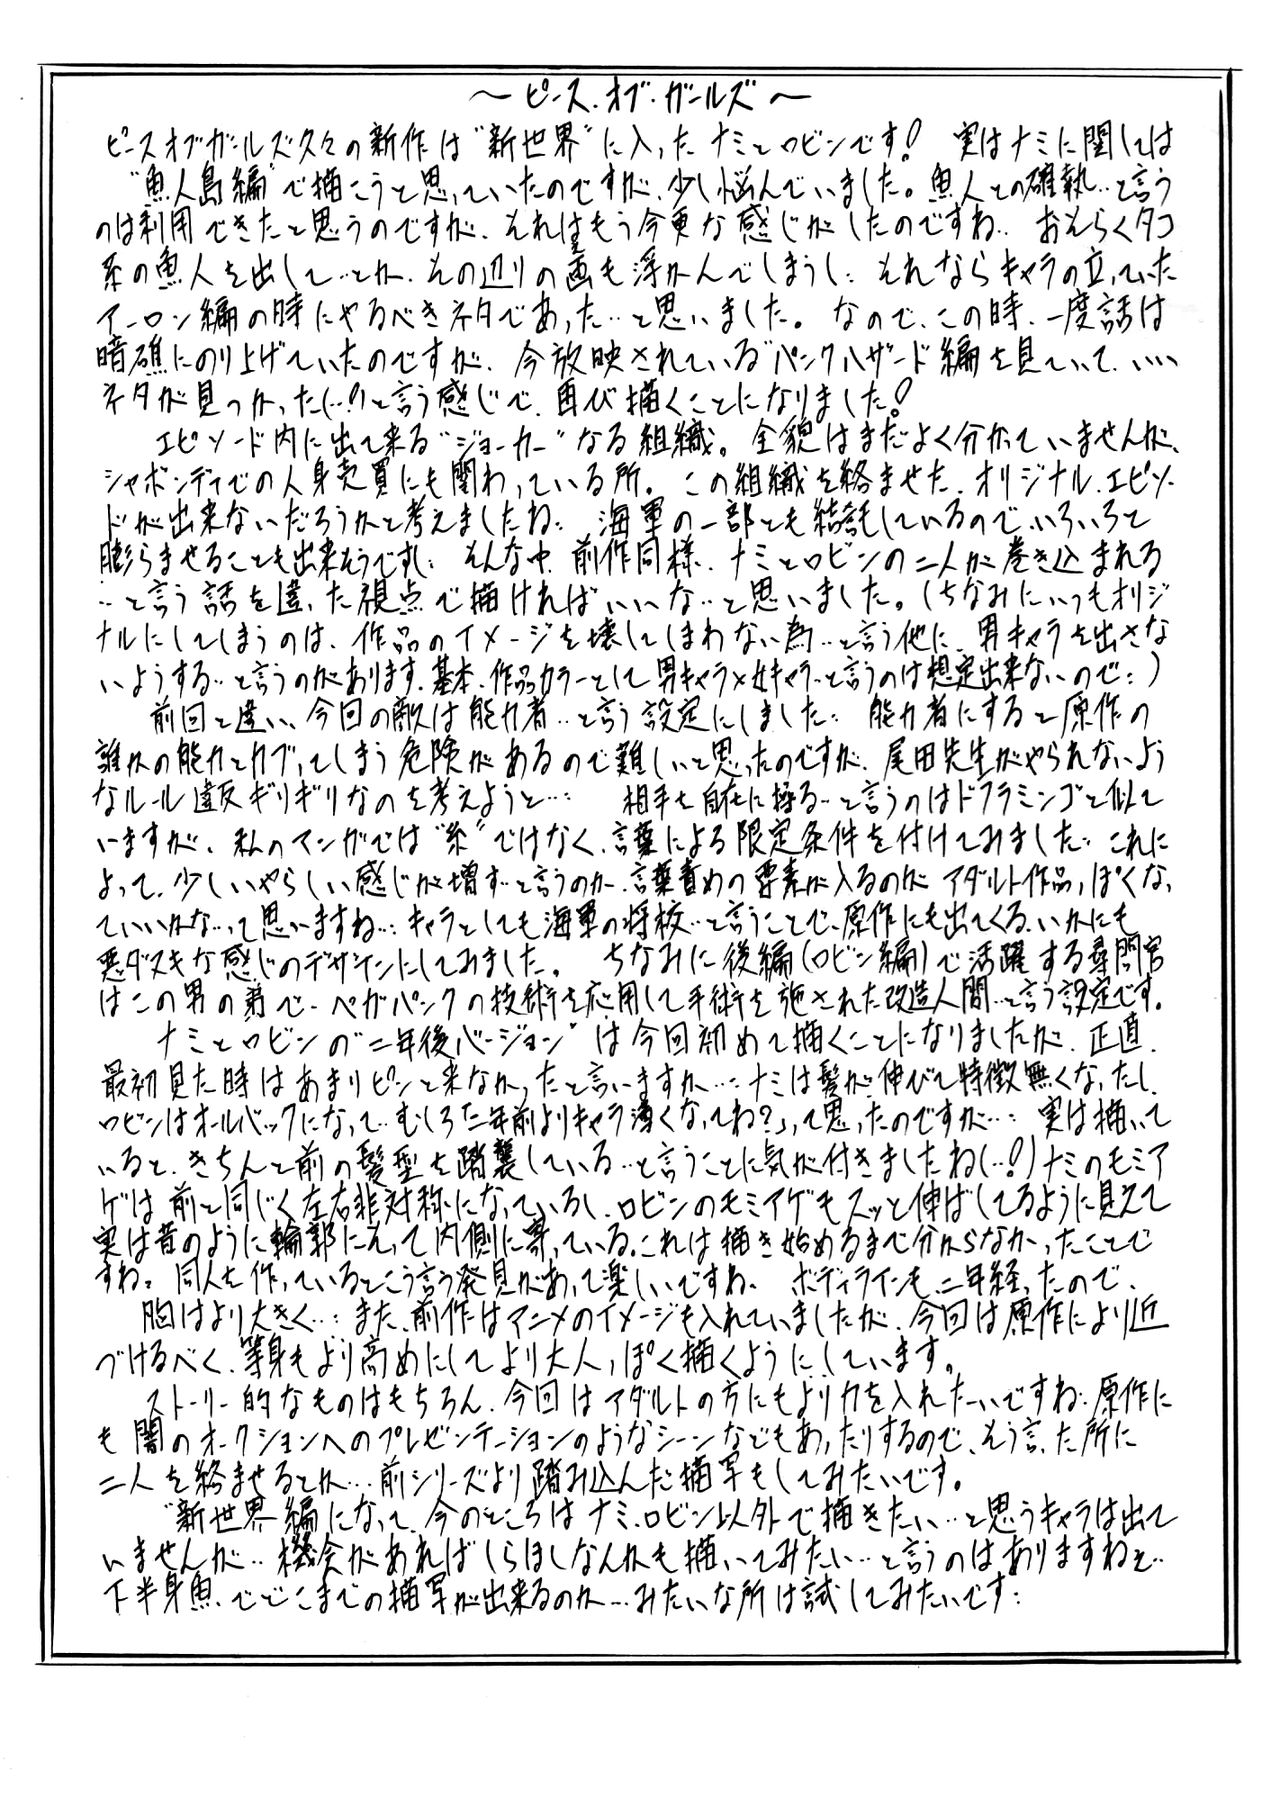 ～ピース・オブ・ガールズ～
ピースオブガールズ久々の新作は"新世界"に入ったナミとロビンです! 実はナミに関しては
"魚人島編"で描こうと思っていたのですが、少し悩んでいました。魚人との確執…と言う
のは利用できたと思うのですが、それはもう今更な感じがしたのですね… おそらくタコ
系の魚人を出して…とか、その辺りの画も浮かんでしまうし… それならキャラの立っていた
アーロン編の時にやるべきネタであった…と思いました。なので、この時、一度話は
暗礁にのり上げていたのですが、今放映されている"パンクハザード編を見ていて、……
ネタが見つかった(…!)と言う感じで、再び描くことになりました!
エピソード内に出て来る"ジョーカー"なる組織。全貌はまだよく分かっていませんが、
シャボンディでの人身売買にも関わっている所。この組織を絡ませた、オリジナル、エピソー
ドが出来ないだろうかと考えましたね… 海軍の一部とも結託しているので、いろいろと
膨らませることも出来そうですし… そんな中、前作同様、ナミとロビンの二人が巻き込まれる
…と言う話を違った視点で描ければいいな…と思いました。(ちなみにいつもオリジ
ナルにしてしまうのは、作品のイメージを壊してしまわない為…と言う他に、男キャラを出さな
いようする…と言うのがあります、基本、作品カラーとして男キャラ×女キャラ…と言うのは想定出来ないので…)
前回と違い、今回の敵は能力者…と言う設定にしました… 能力者にすると原作の
誰かの能力とカブってしまう危険があるので難しいと思ったのですが、尾田先生がやられないよう
なルール違反ギリギリなのを考えようと… 相手を自在に操る…と言うのはドフラミンゴと似て
いますが、私のマンガでは"糸"ではなく、言葉による限定条件を付けてみました… これに
よって、少しいやらしい感じが増す…と言うのか、言葉責めの要素が入るのがアダルト作品っぽくなっ
ていいかな…って思いますね…キャラとしても海軍の将校…と言うことで、原作にも出てくる、いかにも
悪ダヌキな感じのデザインにしてみました。 ちなみに後編(ロビン編)で活躍する尋問官
はこの男の弟で、ベガパンクの技術を応用して手術を施された改造人間…と言う設定です。
ナミとロビンの"二年後バージョン"は今回初めて描くことになりましたが、正直、
最初見た時はあまりピンと来なかったと言いますか…ナミは髪が伸びて特徴無くなったし、
ロビンはオールバックになって、むしろ「二年前よりキャラ薄くなってね?」って思ったのですが… 実は描いて
いると、きちんと前の髪型を踏襲している…と言うことに気が付きましたね(…!)ナミのモミア
ゲは前と同じく左右非対称になっているし、ロビンのモミアゲもスッと伸ばしてるように見えて
実は昔のように輪郭にそって内側に寄っている。これは描き始めるまで分からなかったことで
すね。同人を作っているとこう言う発見があって楽しいですね、 ボディラインも、二年経ったので、
胸はより大きく…また、前作はアニメのイメージも入れていましたが、今回は原作により近
づけるべく、等身もより高めにしてより大人っぽく描くようにしています。
ストーリー的なものはもちろん、今回はアダルトの方にもより力を入れたーいですね…原作に
も闇のオークションへのプレゼンテーションのようなシーンなどもあったりするので、そう言った所に
二人を絡ませるとか…前シリーズより踏み込んだ描写もしてみたいです。
"新世界編"になって、今のところはナミ、ロビン以外で描きたい…と思うキャラは出て
いませんが…機会があればしらほしなんかも描いてみたい…と言うのはありますねぇ…
下半身魚、でどこまでの描写が出来るのか…みたいな所は試してみたいです…